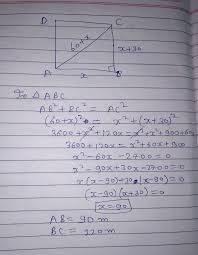 D C
60+x x+30
A x B
In △ABC
AB² + BC² = AC²
(60+x)² = x² + (x+30)²
3600 + x² + 120x = x² + x² + 900 + 60x
3600 + 120x = x² + 60x + 900
x² - 60x - 2700 = 0
x² - 90x + 30x - 2700 = 0
x(x-90) + 30(x-90) = 0
(x-90)(x+30) = 0
x = 90
AB = 90 m
BC = 120 m